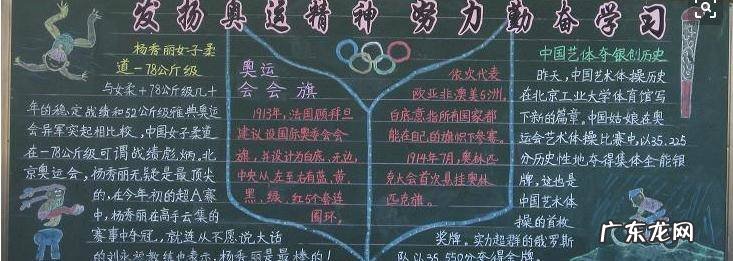 发扬奥运精神 努力勤奋学习
杨秀丽女子柔
道-78公斤级
与女柔+78公斤级几十
年的稳定战绩和52公斤级雅典奥运
会异军突起相比较,中国女子柔道
在-78公斤级可谓战绩彪炳。北
京奥运会,杨秀丽无疑是最顶尖
的,在今年初的超A赛
中,杨秀丽在高手云集的
赛事中夺冠。就连从不愿说大话
的刘永福教练也表示,杨秀丽是最棒的!
奥运
会会旗
1913年,法国顾拜旦
建议设国际奥委会会
旗,并设计为白底、无边,
中央从左至右有蓝、黄、
黑、绿、红5个套连
圆环。
依次代表
欧亚非澳美5洲,
白底意指所有国家都
能在自己的旗帜下参赛。
1914年7月,奥林匹
克大会首次悬挂奥林
匹克旗。
中国艺体夺银创历史
昨天,中国艺术体操历史
在北京工业大学体育馆写
下新的篇章。中国姑娘在奥
运会艺术体操比赛中,以35.225
分历史性地夺得集体全能银
牌,这也是
中国艺术体
操的首枚
奖牌。实力超群的俄罗斯
队以35.550分夺得金牌。
广东龙网